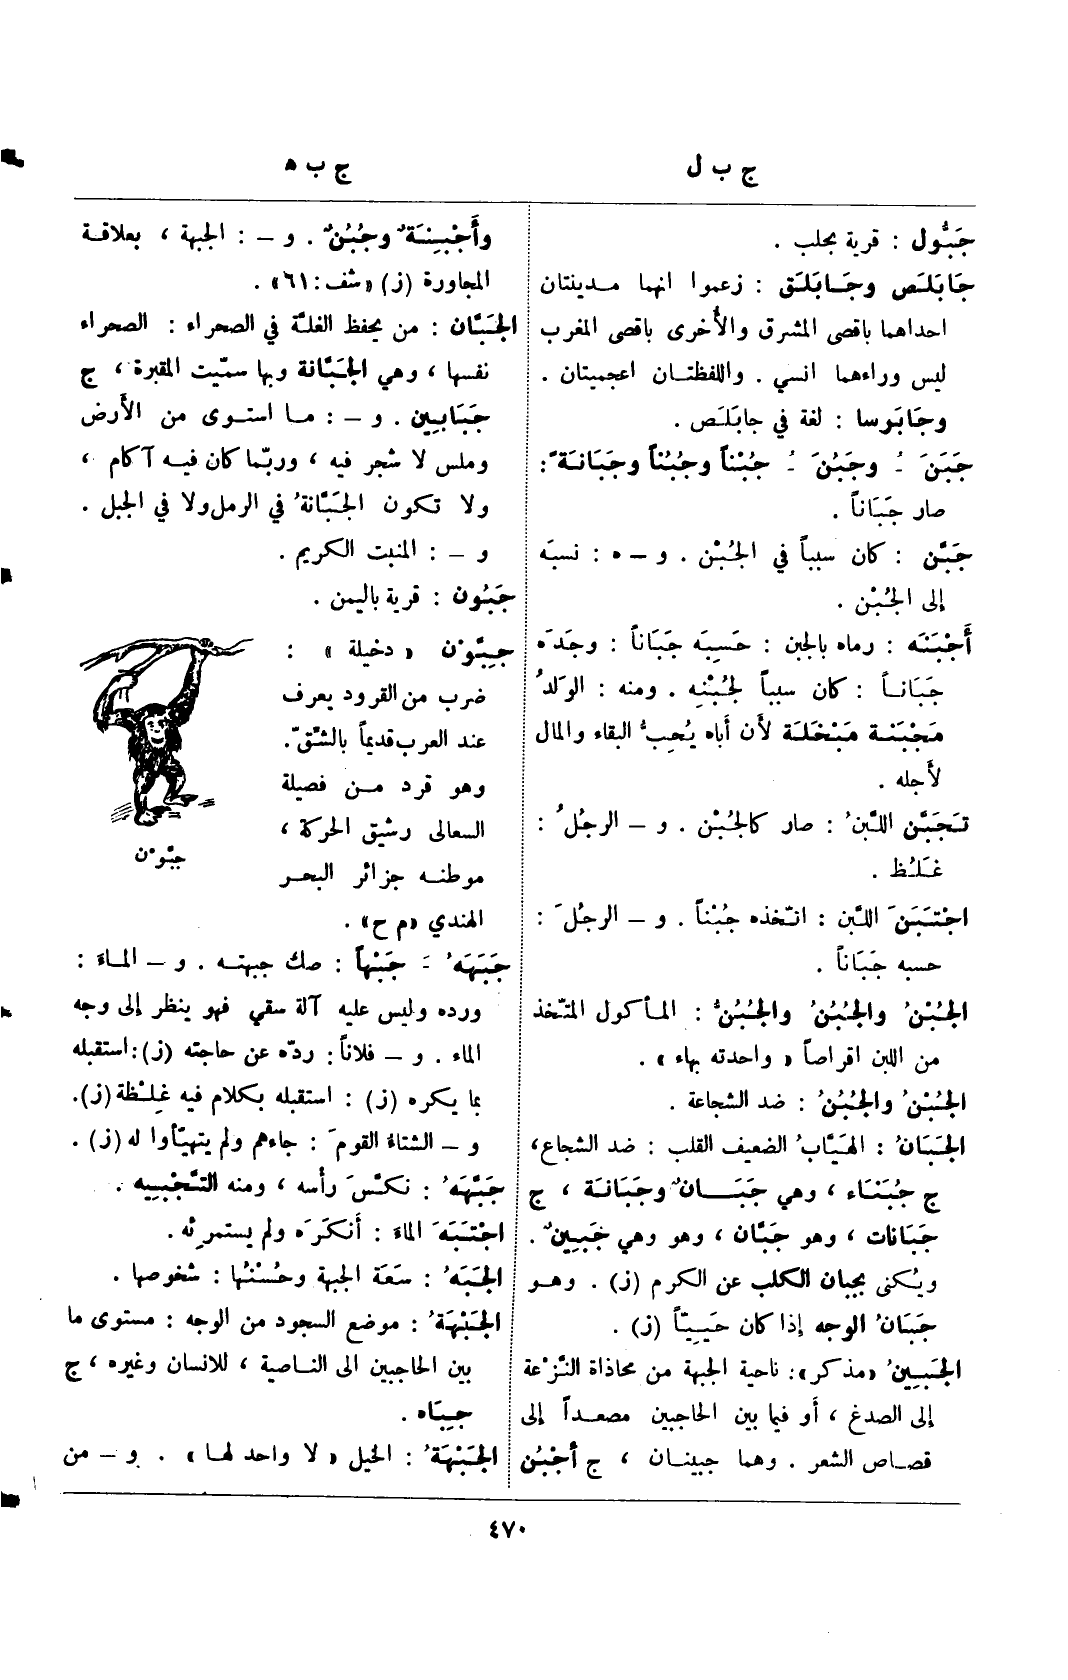 ج ب ل
ج ب ه
جَبُّول : قرية بحلب .
جَابَلَص وجَـابَلَق : زعموا انهما مـدينتان
احداهما باقصى المشرق والأُخرى باقصى المغرب
ليس وراءهما انسي . واللفظتـان اعجميتان .
وجَابَوسا : لغة في جابَلَص .
جَبَنَ ـُ وجَبُنَ ـُ جُبْناً وجُبُناً وجَبَانَـةً :
صار جَبَاناً .
جَبَّن : كان سبباً في الجُبْن . و – ه : نسبَه
إلى الجُبْن .
أَجْبَنَه : رماه بالجبن : حَسِبَه جَبَاناً : وجَدَه
جَبَانـاً : كان سبباً لجُبْنِه . ومنه : الوَلَدُ
مَجْبَنَـة مَبْخَلَـة لأن أباه يُحِبُّ البقاء والمال
لأجله .
تـَجَبَّن اللَّبَنُ : صار كالجُبْن . و – الرجُلُ :
غَـلُـظ .
اجْتَبَنَ اللَّبَن : اتّخذه جُبْناً . و – الرجُلَ :
حسبه جَبَاناً .
الجُبْنُ والجُبُنُ والجُبُنُّ : المـأكول المتّخذ
من اللبن اقراصاً « واحدته بهاء » .
الجُبْنُ والجُبُنُ : ضد الشجاعة .
الجَبَانُ : الهَيَّابُ الضعيف القلب : ضد الشجاع،
ج جُبَنَـاء ، وهي جَبَـــانٌ وجَبَانَـة ، ج
جَبَانات ، وهو جَبَّان ، وهو وهي جَبِينٌ .
ويُكنى بجبان الكلب عن الكرم (ز) . وهـو
جَبَانُ الوجه إذا كان حَيـيّاً (ز) .
الجَبـِينُ «مذكر»: ناحية الجبهة من محاذاة النَّزْعة
إلى الصدغ ، أو فيما بين الحاجبين مصعـداً إلى
قصـاص الشعر . وهما جبينـان ، ج أَجْبُن
وأَجْبِـنَـةٌ وجُبُنٌ . و – : الجبهة ، بعلاقـة
المجاورة (ز) «شف:٦١» .
الجَبَّان : من يحفظ الغلَّة في الصحراء : الصحراء
نفسها ، وهي الجَبَّانة وبها سمّيت المقبرة ، ج
جَبَابـِين . و – : مـا استـوى من الأَرض
وملس لا شجر فيه ، وربّما كان فيـه آكام ،
ولا تـكون الجَبَّانةُ في الرمل ولا في الجبل .
و – : المنبت الكريم .
جَبُون : قرية باليمن .
جِبُّوْن « دخيلة » :
ضرب من القرود يعرف
عند العرب قديماً بالشَّقّ .
وهو قرد مـن فصيلة
السعالى رشيق الحركة ،
موطنـه جزائر البحـر
الهندي «م ح» .
جبّوْن
جَبَهَهُ ـَ جَبْهاً : صك جبهتـه . و – المـاءَ :
ورده وليس عليه آلة سقي فهو ينظر إلى وجه
الماء . و – فلاناً : ردّه عن حاجته (ز):استقبله
بما يكره (ز) : استقبله بكلام فيه غِلـْظة (ز).
و – الشتاءُ القومَ : جاءهم ولم يتهيّأوا له (ز) .
جَبَّهَهُ : نكـّسَ رأسه ، ومنه التَّجْبـِيه .
اجْتَبَهَ الماءَ : أَنكَرَه ولم يستمرِئه .
الجَبَهُ : سَعَة الجبهة وحُسْنُها : شخوصها .
الجَبْهَةُ : موضع السجود من الوجه : مستوى ما
بين الحاجبين الى النـاصية ، للانسان وغيره ، ج
جـِبَاه .
الجَبْهَةُ : الخيل « لا واحد لهـا » . و – من
٤٧٠